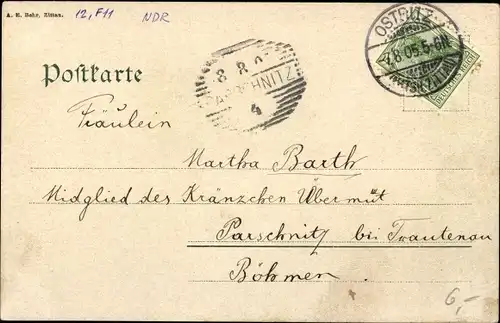 A. H. Behr, Zittau.
12, F11
NDR
OSTRITZ
7.8.05.5-6N.
DEUTSCHES REICH
8 8 0
PARSCHNITZ
4
Postkarte
Fräulein
Martha Barth
Midglied des Kränzchen Übermut
Parschnitz bei Trautenau
Böhmen.
6,-